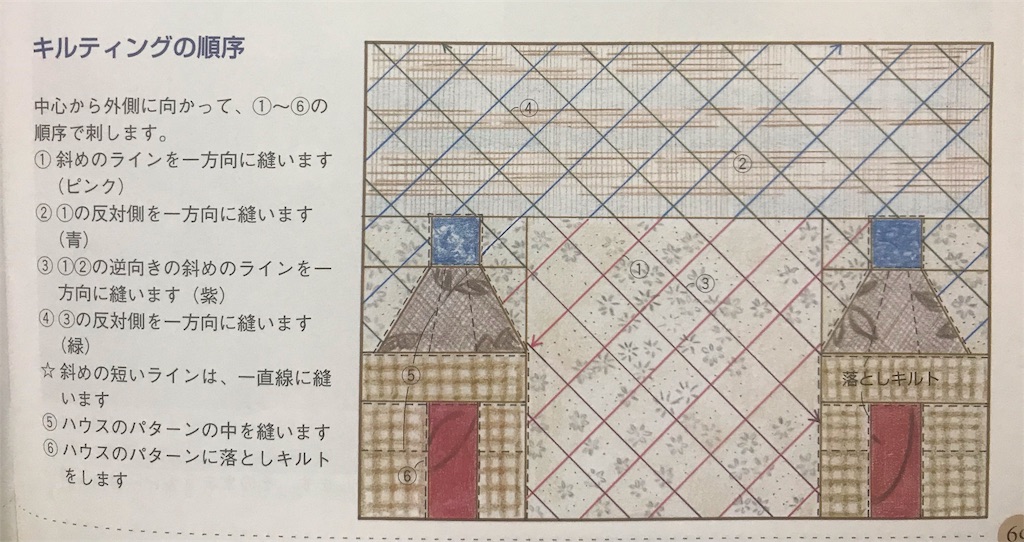 キルティングの順序
中心から外側に向かって、①〜⑥の
順序で刺します。
① 斜めのラインを一方向に縫います
（ピンク）
② ①の反対側を一方向に縫います
（青）
③ ①②の逆向きの斜めのラインを一
方向に縫います（紫）
④ ③の反対側を一方向に縫います
（緑）
☆ 斜めの短いラインは、一直線に縫
います
⑤ ハウスのパターンの中を縫います
⑥ ハウスのパターンに落としキルト
をします
④
②
①
③
⑤
落としキルト
⑥